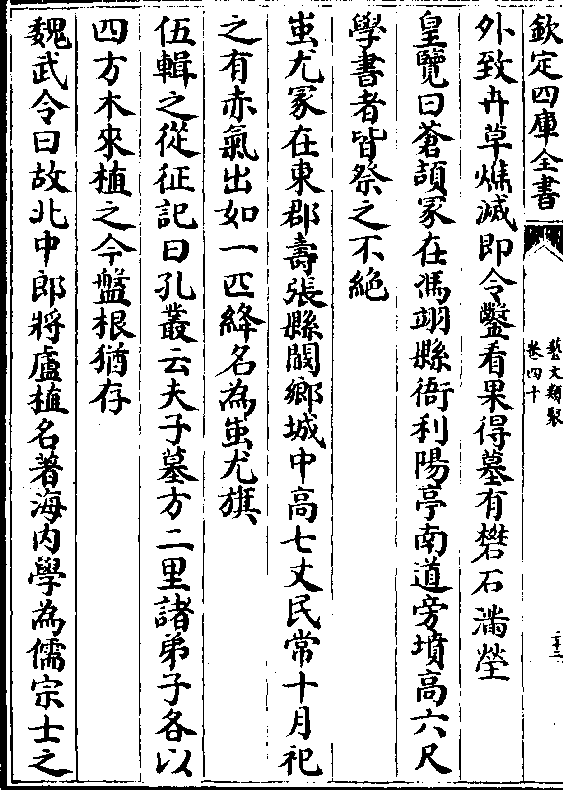 欽定四庫全書
藝文類聚
卷四十
外致卉草燋滅即令鑿看果得墓有礬石滿塋
皇覽曰蒼頡冢在馮翊縣衙利陽亭南道旁墳高六尺
學書者皆祭之不絶
蚩尤冢在東郡壽張縣闞鄉城中高七丈民常十月祀
之有赤氣出如一匹絳名為蚩尤旗
伍輯之從征記曰孔叢云夫子墓方二里諸弟子各以
四方木來植之今盤根猶存
魏武令曰故北中郎將盧植名著海内學為儒宗士之